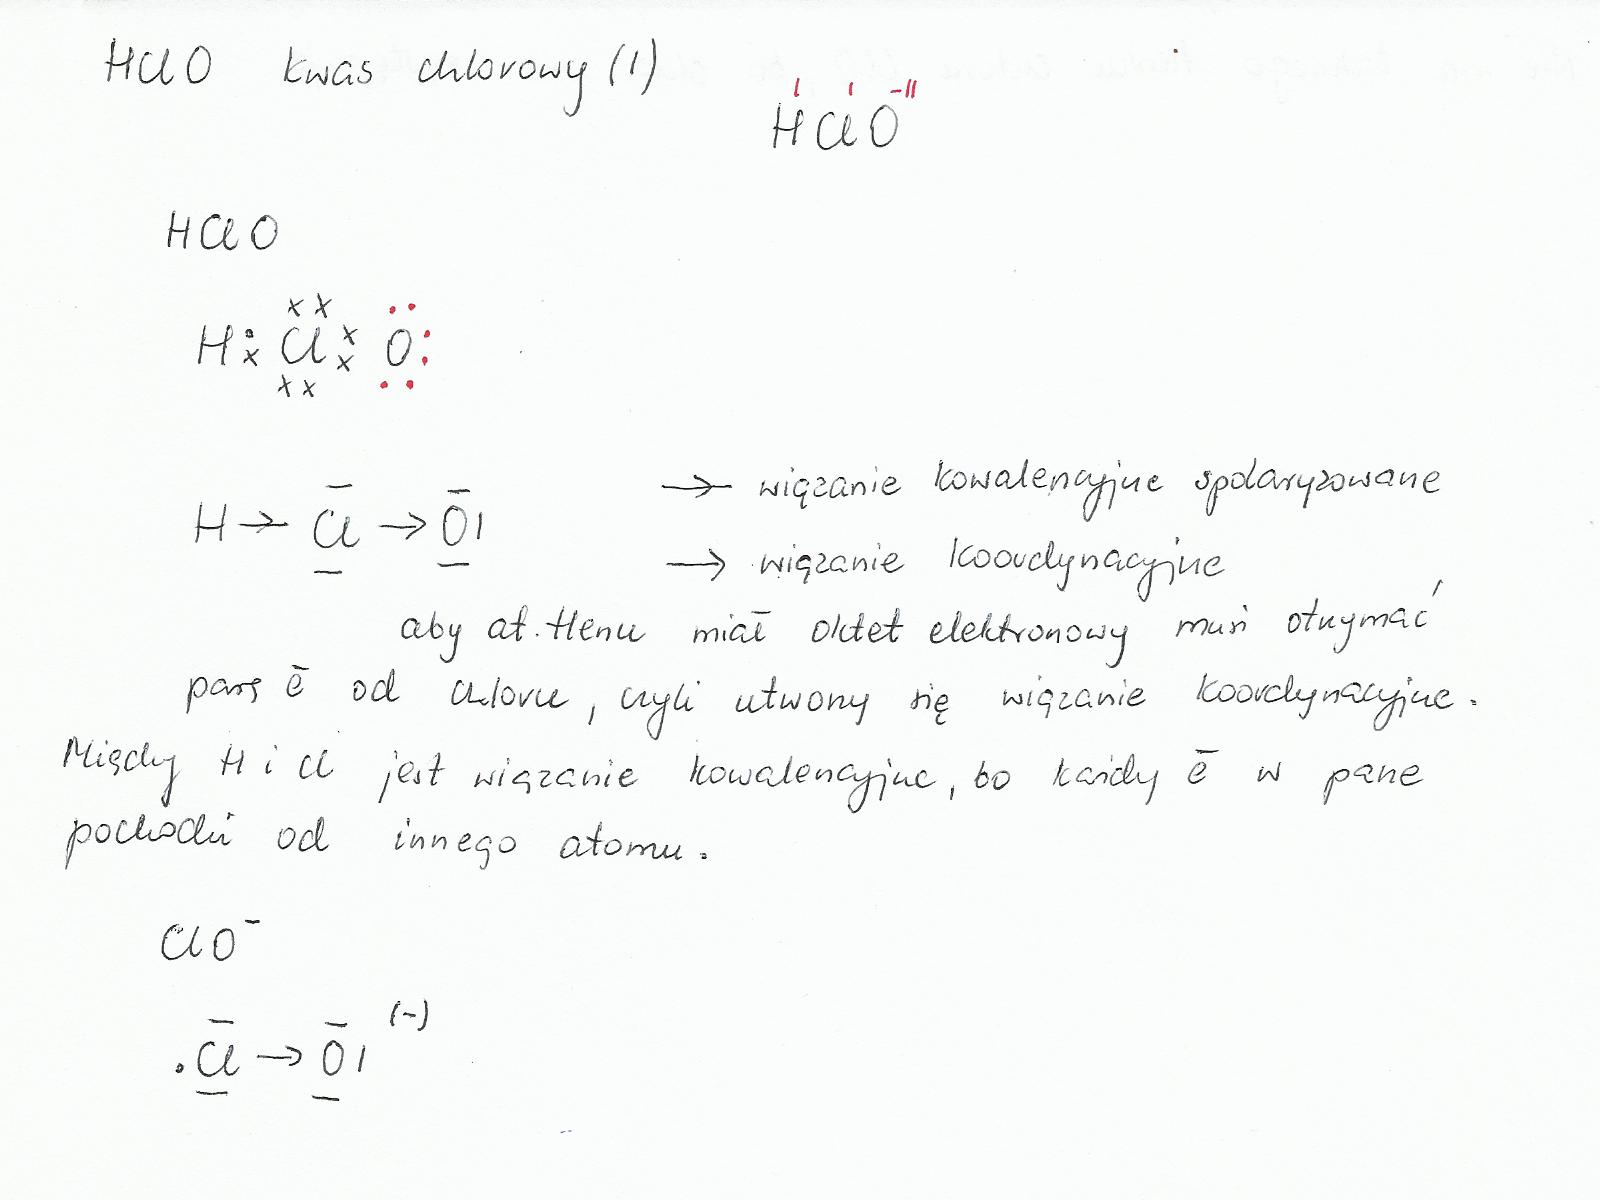 HClO kwas chlorowy (I)
I I -II
HClO
HClO
H Cl O
H → Cl → O → wiązanie kowalencyjne spolaryzowane
→ wiązanie koordynacyjne
aby at. tlenu miał oktet elektronowy musi otrzymać
parę e̅ od chloru, czyli utworzy się wiązanie koordynacyjne.
Między H i Cl jest wiązanie kowalencyjne, bo każdy e̅ w parze
pochodzi od innego atomu.
ClO⁻
Cl → O (-)